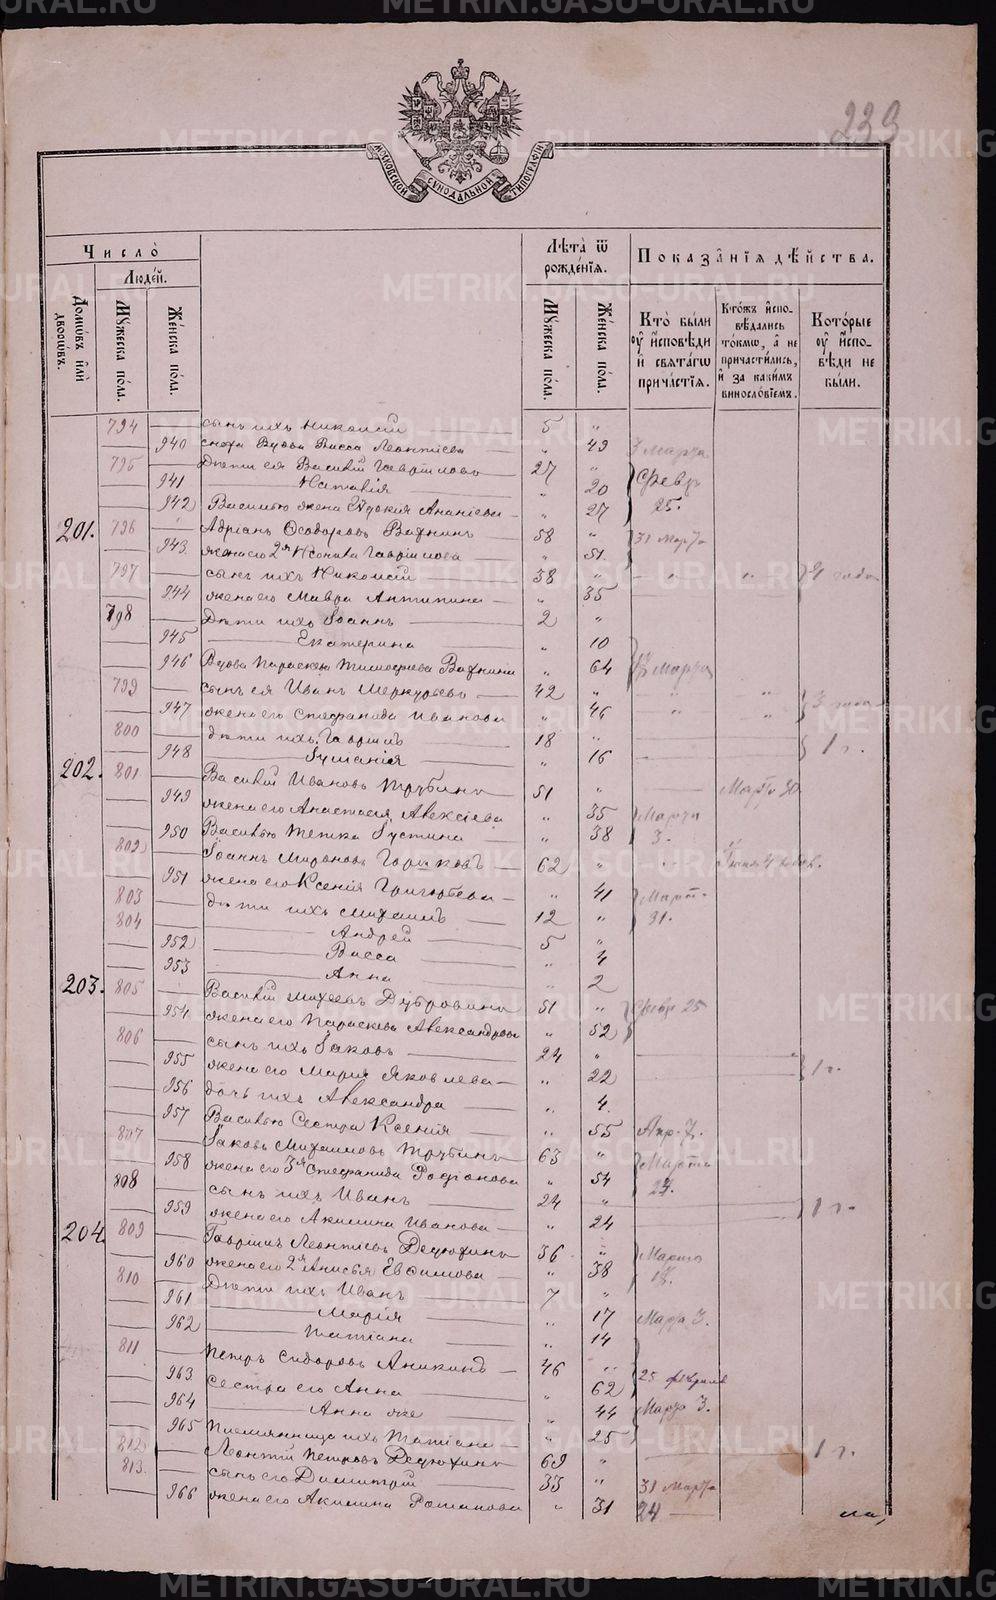 239
МОСКОВСКОЙ СѴНОДАЛЬНОЙ ТИПОГРАФІИ
Число̀
Люде́й.
Домѡ́въ и҆лѝ дворѡ́въ.
Мꙋ́жеска по́ла.
Же́нска по́ла.
Лѣ́та ѿ рожде́нїѧ.
Мꙋ́жеска по́ла.
Же́нска по́ла.
Показа̑нїѧ дѣ́йства.
Кто̀ бы́ли ᲂу҆ и҆́сповѣди и҆ свѧта́гѡ прича́стїѧ.
Кто́жъ и҆сповѣ́дались то́кмѡ, а҆ не причасти́лись, и҆ за каки́мъ виносло́вїемъ.
Кото́рые ᲂу҆ и҆́сповѣди не бы́ли.
794 сынъ ихъ Никонъ 5 „
940 сноха Вдова Васса Леонтіева „ 49 3 Марта
795 Дѣти ея Василій Гавріиловъ 27 „ Февр
941 Наталія „ 20 25.
942 Василью жена Евдокія Ананіева „ 27
201. 796 Адріанъ Ѳеодоровъ Вахнинъ 58 „ 31 Марта
943 жена его 2я Ксенія Гавріилова „ 51
797 сынъ ихъ Никонъ 38 „ „ „ 4 года
944 жена его Мавра Антипина „ 35
798 Дѣти ихъ Іоаннъ 2 „
945 Екатерина „ 10
946 Вдова Параскева Тимофеева Вахнина „ 64 Марта
799 сынъ ея Иванъ Меркурьевъ 42 „ „ „ 3 года
947 жена его Стефанида Иванова „ 46 „ „
800 дѣти ихъ Гавріилъ 18 „ 1 г.
948 Іуліанія „ 16
202. 801 Василій Ивановъ Трубинъ 51 „ Марта 30
949 жена его Анастасія Алексіева „ 35 Марта
950 Василью тетка Іустина „ 38 3.
802 Іоаннъ Мироновъ Горчаковъ 62 „
951 жена его Ксенія Григорьева „ 41 Март
803 дѣти ихъ Михаилъ 12 „ 31.
804 Андрей 5 „
952 Васса „ 4
953 Анна „ 2
203. 805 Василій Михеевъ Дубровинъ 51 „ Февр 25
954 жена его Параскева Александрова „ 52
806 сынъ ихъ Іаковъ 24 „
955 жена его Марія Яковлева „ 22 1 г.
956 дочь ихъ Александра „ 4
957 Василью Сестра Ксенія „ 55 Апр. 7.
807 Іаковъ Михаиловъ Трубинъ 63 „ Марта
958 жена его 3я Стефанида Родіонова „ 54 24.
808 сынъ ихъ Иванъ 24 „ 1 г.
959 жена его Акилина Иванова „ 24
204. 809 Гавріилъ Леонтіевъ Дедюхинъ 36 „ Марта
960 жена его 2я Анисья Евѳимова „ 38 18.
810 Дѣти ихъ Иванъ 7 „
961 Марія „ 17 Марта 3.
962 Татіана „ 14
811 Петръ Сидоровъ Аникинъ 46 „
963 Сестра его Анна „ 62 25 февраля
964 Анна же „ 44 Марта 3.
965 Племянница ихъ Татіана „ 25
812 Леонтій Петровъ Дедюхинъ 69 „ 1 г.
813. сынъ его Димитрій 33 „ 31 Марта
966 жена его Акилина Романова „ 31 24